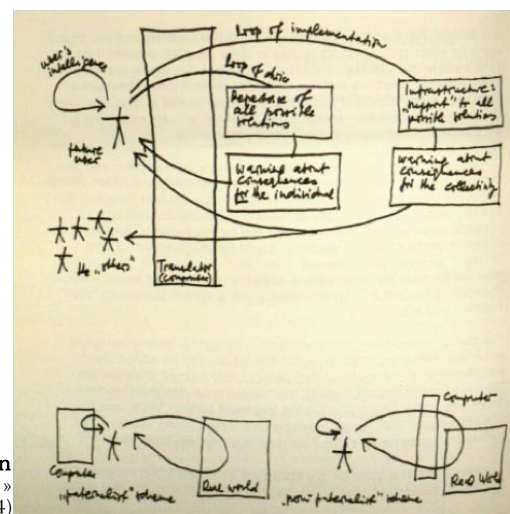 Loop of implementation
user's
intelligence
Loop of choice
future
user
Repertoire of
all possible
solutions
Infrastructure:
"support" to all
possible solutions
Warning about
consequences
for the individual
Warning about
consequences
for the collectivity
the "others"
Translator
(computer)
Computer
Real world
"paternalist" scheme
Computer
Real World
"non paternalist" scheme
n
»
4)